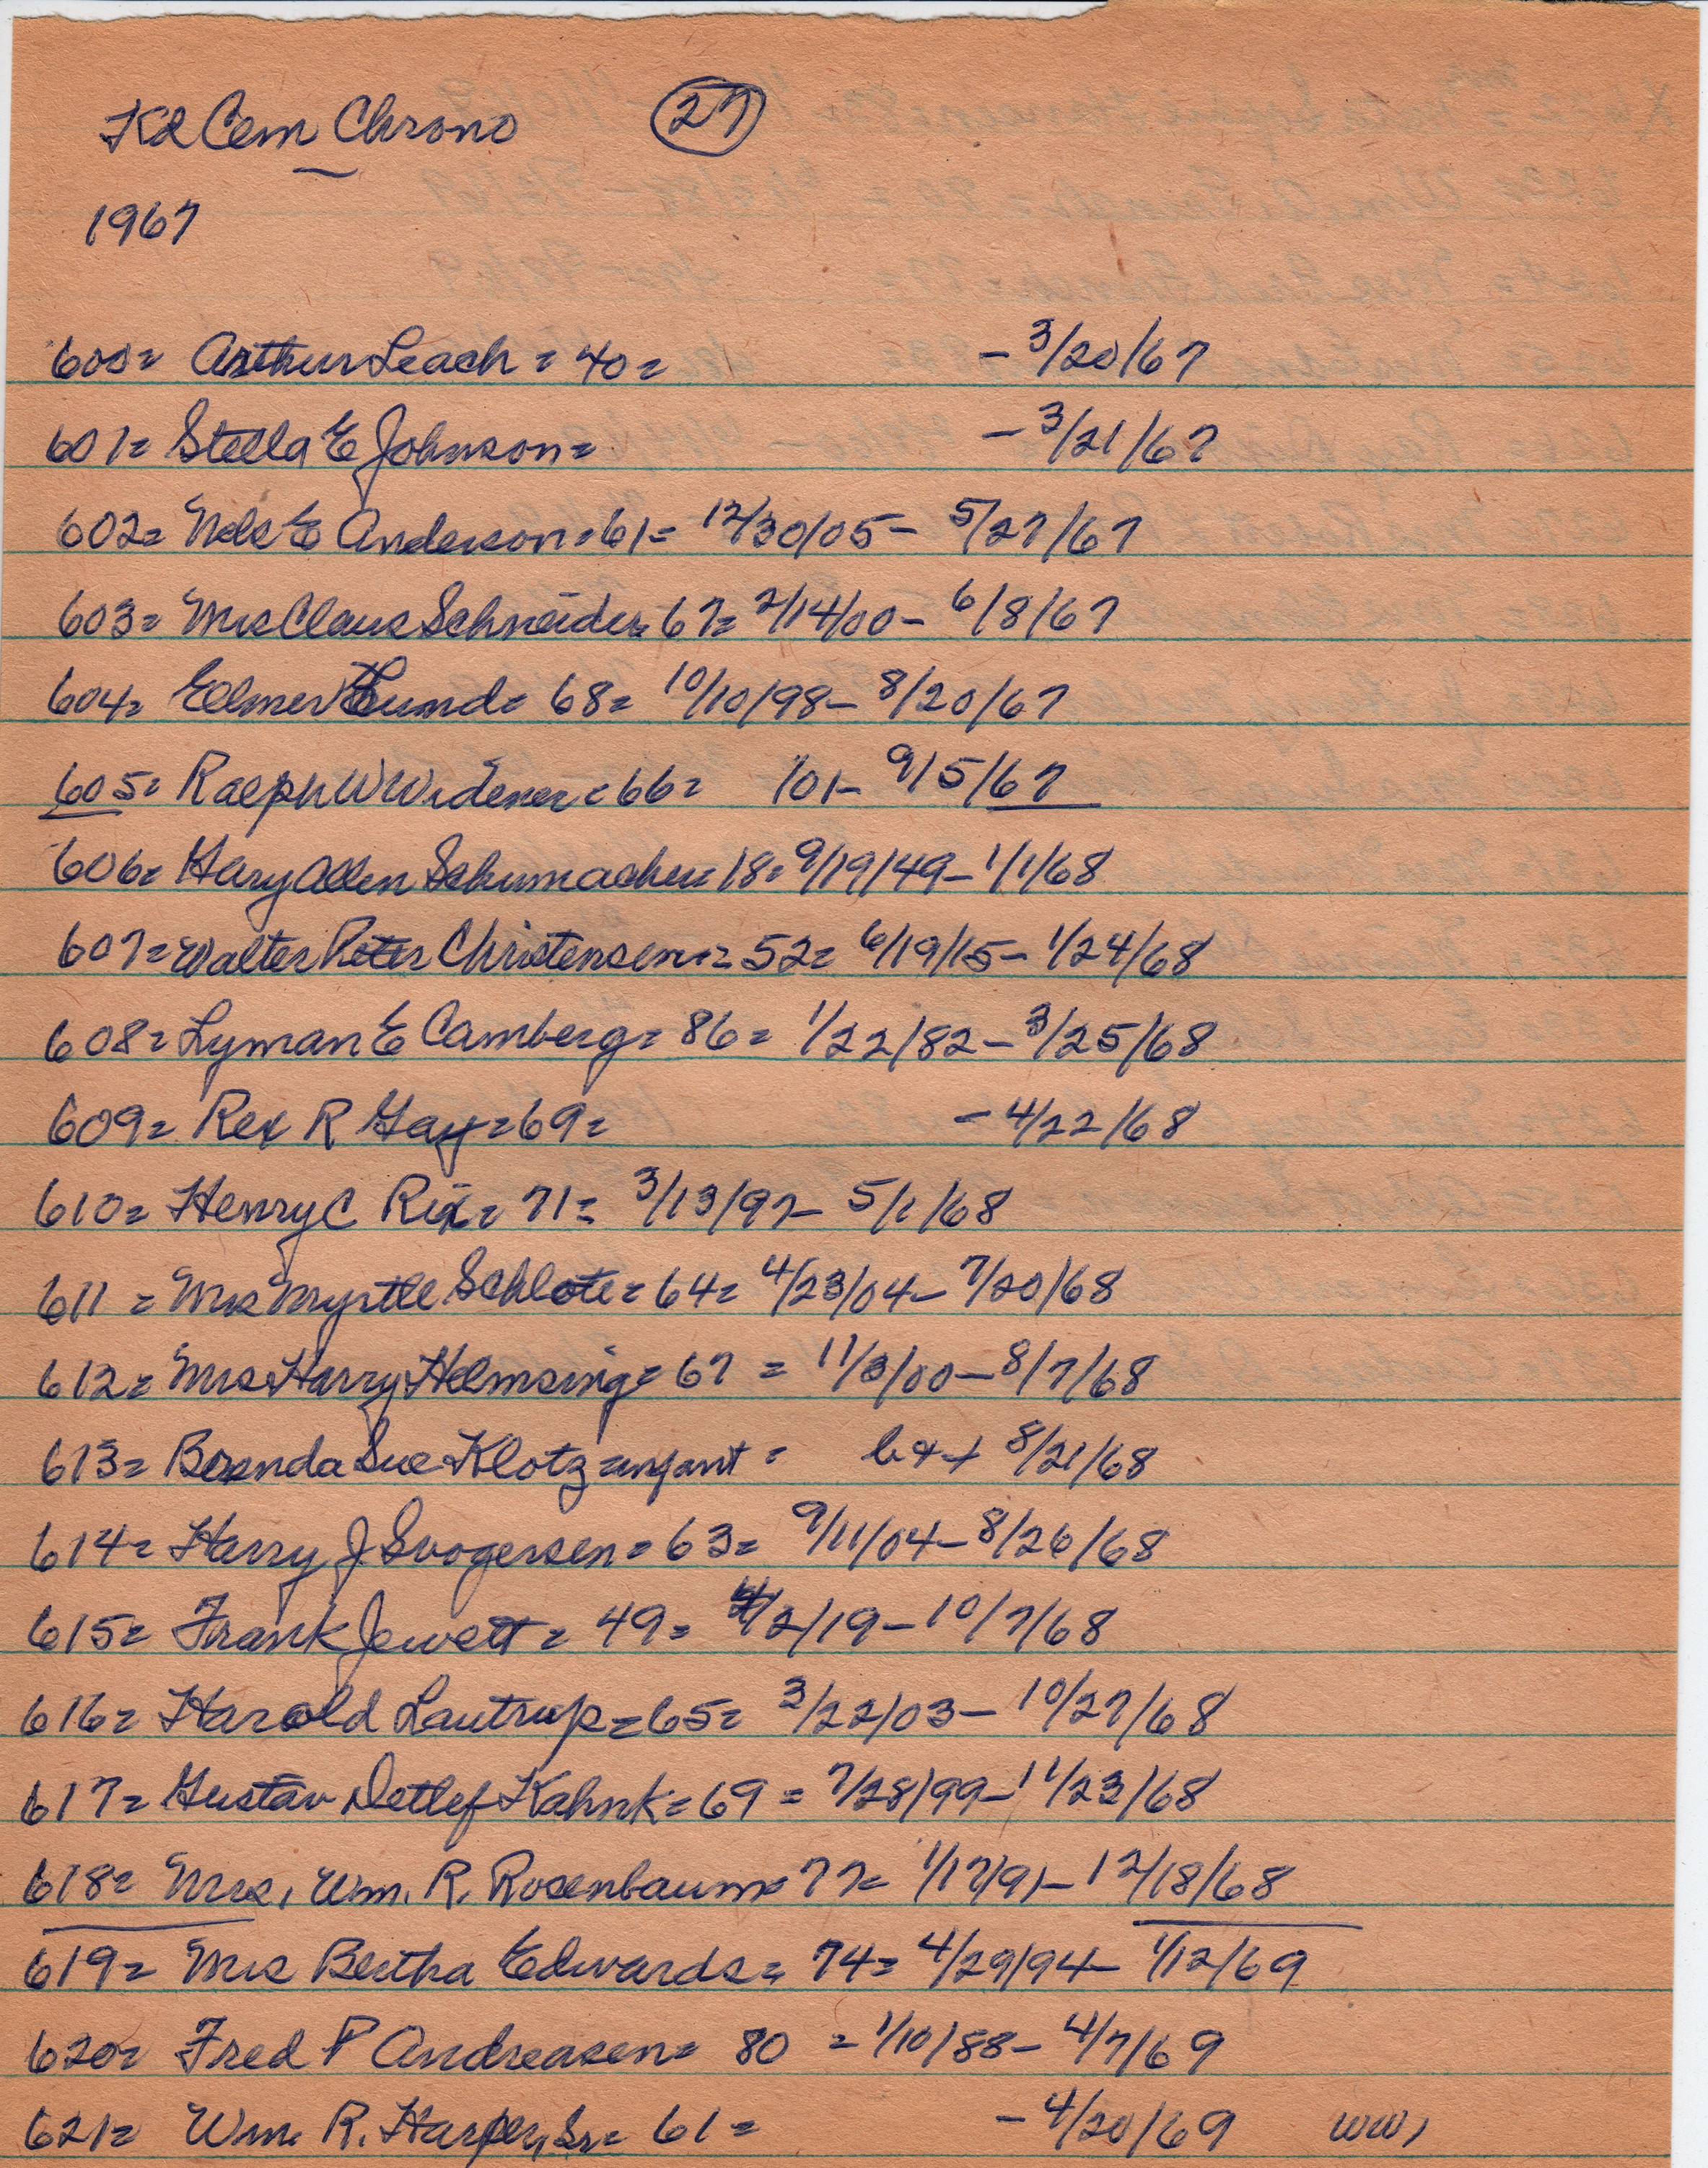 Kd Cem Chrono 27
1967
600= Arthur Leach = 40= - 3/20/67
601= Stella E Johnson= - 3/21/67
602= Nels E Anderson = 61= 12/30/05- 5/27/67
603= Mrs Claus Schneider= 67= 2/14/00- 6/8/67
604= Elmer Lund= 68= 10/10/98- 8/20/67
605= Ralph W Widener = 66= /01- 9/5/67
606= Gary Allen Schumacher= 18= 9/19/49- 1/1/68
607= Walter Peter Christensen= 52= 6/19/15- 1/24/68
608= Lyman E Camberg= 86= 1/22/82- 3/25/68
609= Rex R Gay= 69= - 4/22/68
610= Henry C Rix= 71= 3/13/97- 5/1/68
611 = Mrs Myrtle Schlote= 64= 4/23/04- 7/20/68
612= Mrs Harry Helmsing= 67 = 11/3/00- 8/7/68
613= Brenda Sue Klotz =infant = b + + 8/21/68
614= Harry J Svogersen= 63= 9/11/04- 8/26/68
615= Frank Jewett= 49= /2/19- 10/7/68
616= Harold Lautrup= 65= 3/22/03- 10/27/68
617= Gustav Detlef Kahnk= 69 = 7/28/99- 11/23/68
618= Mrs, Wm. R. Rosenbaum= 77= 1/17/91- 12/18/68
619= Mrs Bertha Edwards= 74= 4/29/94- 1/12/69
620= Fred P Andreasen= 80 = 1/10/88- 4/7/69
621= Wm. R. Harper, Sr= 61= - 4/20/69 WW1